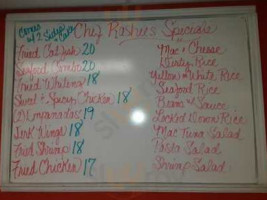 Comes w/ 2 Sides
Chef Rashees Specials
Fried Catfish 20
Seafood Combo 20
Fried Whiting 18
Sweet + Spicy Chicken 18
(2) Empanadas 19
Jerk Wings 18
Fried Shrimp 18
Fried Chicken 17
Mac + Cheese
Dirty Rice
Yellow + White Rice
Seafood Rice
Beans + Sauce
Rice
Mac Tuna Salad
Pasta Salad
Shrimp Salad